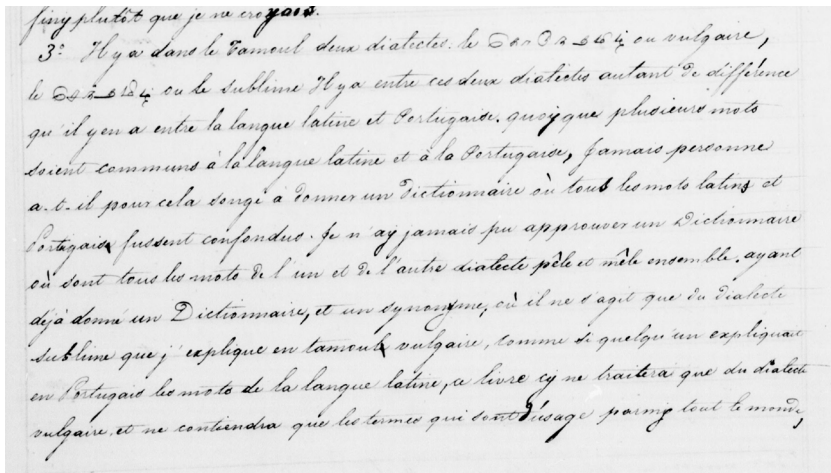 finy plutôt que je ne croyais.
3º Il y a dans le Tamoul deux dialectes. le ou vulgaire,
le ou le sublime Il y a entre ces deux dialectes autant de différence
qu'il y en a entre la langue latine et Portugaise. quoyque plusieurs mots
soient communs à la langue latine et à la Portugaise, Jamais personne
a-t-il pour cela songé à donner un Dictionnaire où tous les mots latins et
Portugais fussent confondus. Je n'ay jamais pu approuver un Dictionnaire
où sont tous les mots de l'un et de l'autre dialecte pêle et mêle ensemble. ayant
déjà donné un Dictionnaire, et un synonyme, où il ne s'agit que du dialecte
sublime que j'explique en tamoul vulgaire, comme si quelqu'un expliquait
en Portugais les mots de la langue latine, ce livre cy ne traitera que du dialecte
vulgaire, et ne contiendra que les termes qui sont d'usage parmy tout le monde,